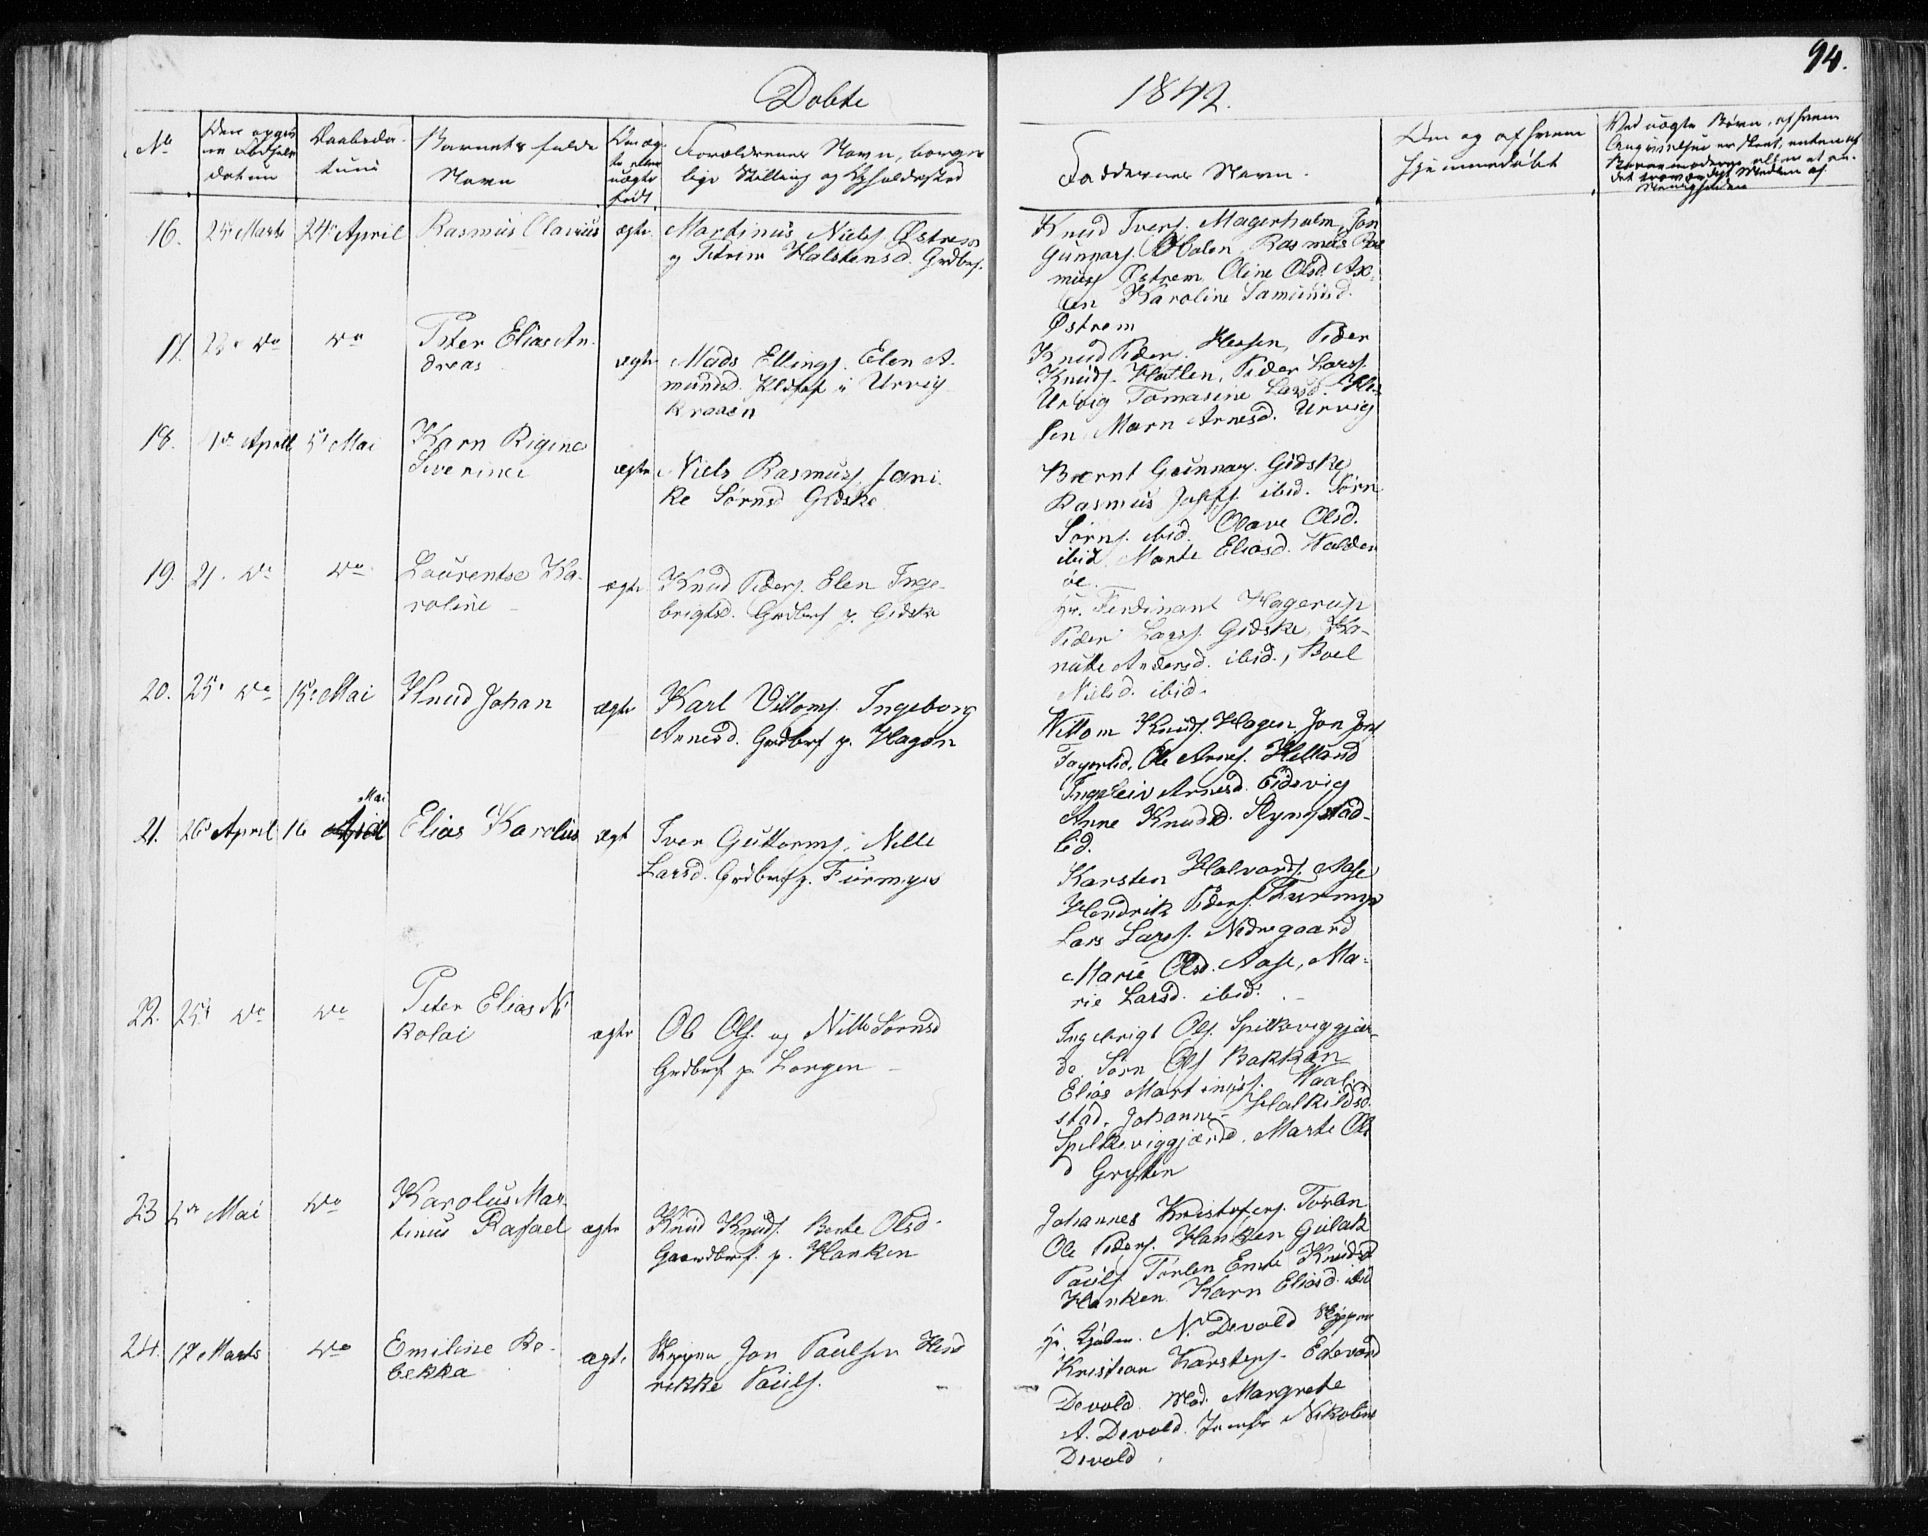 94.
Døbte
1842.
No
Den opgiv
ne Fødsels
datum
Daabsda-
tum
Barnets fulde
Navn
Om æg-
te eller
uægte
født
Forældrenes Navn, borger
lige Stilling og Opholdssted
Faddernes Navn.
Om og af hvem
hjemmedøbt
Ved uægte Børn, af hvem
Angivelsen er skeet, enten af
Barnemoderen eller et an-
det troværdigt Medlem af
Menigheden
16.
25 Marts
24 April
Rasmus Clavius
ægte
Martinus Niels. Østrem
og Petrine Halstensd. Grdbrf.
Knud Ivers. Magerholm, Jon
Gunnars. Holen, Rasmus Ras
muss Østrem Oline Olsd.
Karoline Samuelsd.
Østrem
17.
do
do
Peter Elias An-
dreas
ægte
Mads Ellings. Elen A-
mundsd. Urvig
Kraaen
Knud Peders. Hessen, Peder
Knuds. Hatlen, Peder Lars.
Urvig Tomasine Larsd.
sen Marn Arnesd. Urvig
18.
1 April
5 Mai
Karn Rigine
Severine
ægte
Niels Rasmuss. Jani-
ke Sørnsd Gidske
Bernt Gunnars. Gidske
Rasmus ibid. Sørn
Sørns. ibid. Olave Olsd.
ibid Marte Eliasd. Walder
øe.
19.
21. do
do
Laurentse Ka-
roline
ægte
Knud Peders. Elen Inge-
brigtsd. Grdbrf p. Gidske
Hr. Ferdinant Hagerup
Peder Lars. Gidske, Ka-
nutte Andersd. ibid., Boel
Nielsd. ibid.
20.
25 do
15 Mai
Knud Johan
ægte
Karl Vittoms. Ingeborg
Arnesd. Grdbrf p. Hagen
Wittom Knuds. Hagen, Jon Jons
Fagerlid, Ole Arnes. Helland
Ingeleiv Arnesd. Eidsvig
Anne Knudsd. Slyngstad-
lid.
21.
26 April
16 Mai
Elias Karolus
ægt
Iver Guttorms. Nille
Larsd. Grdbrf p. Furmyr
Karsten Halvords. Aase
Hendrik Peders. Furmyr
Lars Lars. Nedregaard
Marie Olsd. Aase, Ma-
rie Larsd. ibid.
22.
25 do
do
Peter Elias Ni
kolai
ægte
Ole Ols. og Nille Sørnsd
Grdbrf p. Longen
Ingebrigt Ols. Spilkeviggjær-
de, Sørn Ols Bakken
Elias Martinuss. Waal-
stad, Johanne Halkildsd.
Spilkeviggjærd. Marte Ols
d Grytten
23
Mai
do
Karolus Mar-
tinus Rafael
ægte
Knud Knuds. Bente Olsd.
Gaardbrf. p. Hanken
Johannes Kristofers. Torlen
Ole Peders. Hanken Gulak
Pouls. Torlen Ente Knudsd
Hanken Karn Eliasd. ibid
24.
17 Marts
do
Emiline Re-
bekka
ægte
Skipper Jon Paulsen Hend
rikke Pouls.
Hr. N. Devold Skipper
Kristian Karstens. Edevard
Devold Mad. Margrete
A. Devold Jomfr Nikoline
Devold